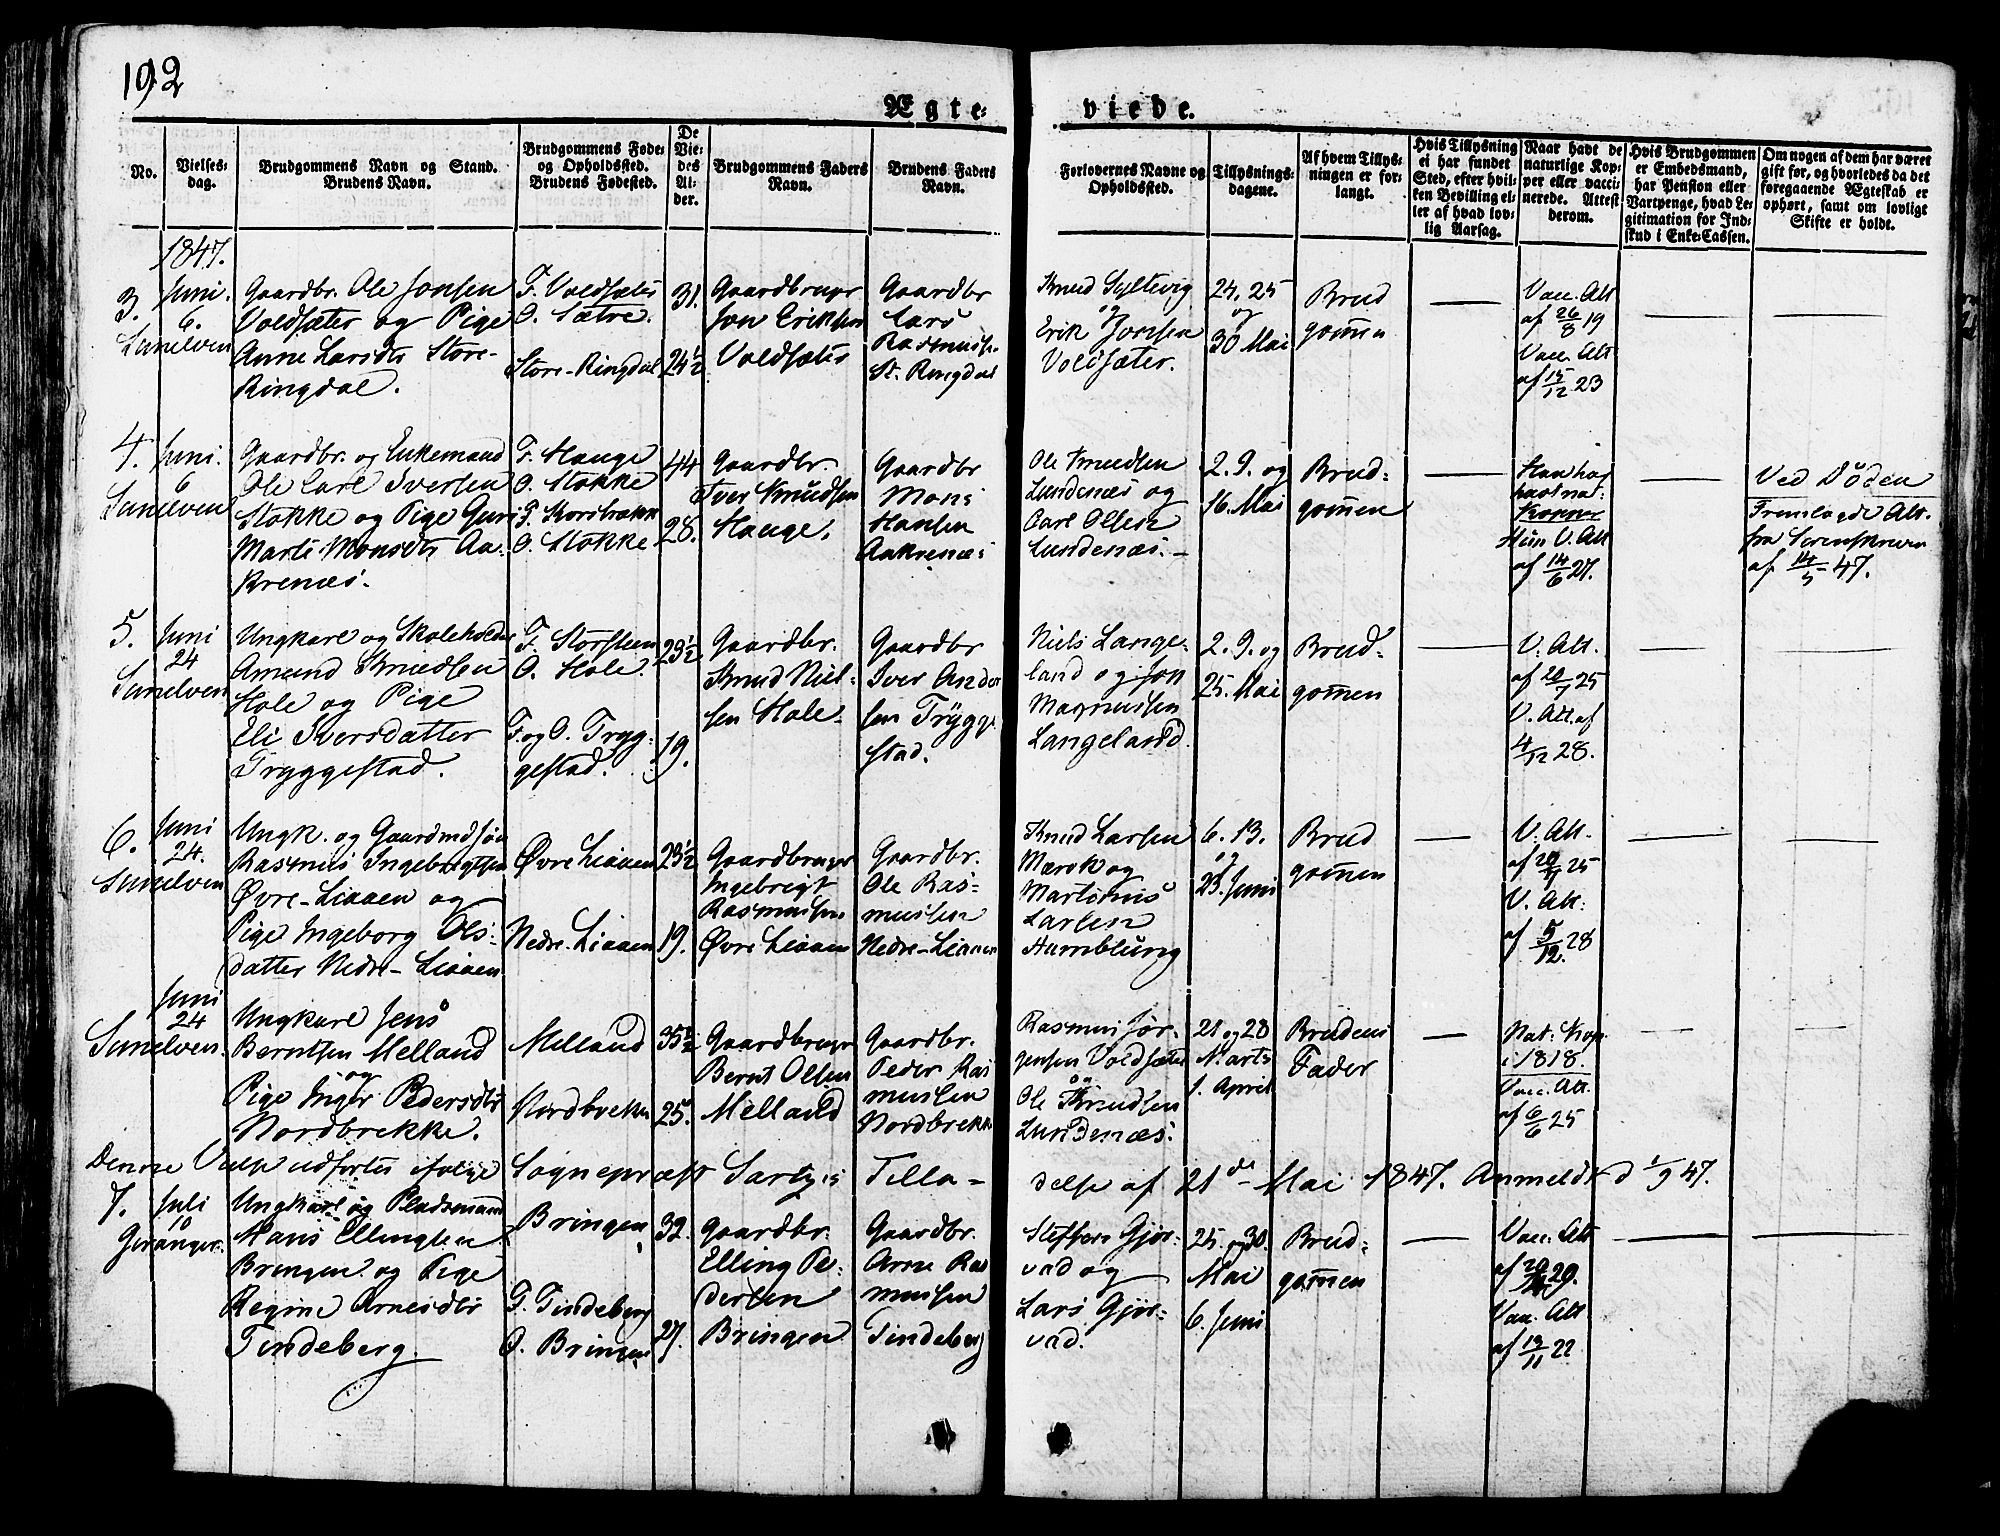 192
Ægte-
viede.
No.
Vielses-
dag.
Brudgommens Navn og Stand.
Brudens Navn.
Brudgommens Føde-
og Opholdssted.
Brudens Fødested.
De
Vie-
des
Al-
der.
Brudgommens Faders
Navn.
Brudens Faders
Navn.
Forlovernes Navne og
Opholdssted.
Tillysnings-
dagene.
Af hvem Tillys-
ningen er for-
langt.
Hvis Tillysning
ei har fundet
Sted, efter hvil-
ken Bevilling el-
ler af hvad lov-
lig Aarsag.
Naar havt de
naturlige Kop-
per eller vacci-
nerede. Attest
derom.
Hvis Brudgommen
er Embedsmand,
har Pension eller
Vartpenge, hvad Le-
gitimation for Ind-
skud i Enke-Cassen.
Om nogen af dem har været
gift før, og hvorledes da det
foregaaende Ægteskab er
ophørt, samt om lovligt
Skifte er holdt.
1847.
3.
Juni.
6.
Sunelven
Gaardbr. Ole Jonsen
Voldsæter og Pige
Anne Larsdtr Store-
Ringdal.
F. Voldsæter
O. Sætre.
Store-Ringdal
31.
24½
Gaardbruger
Jon Eriksen
Voldsæter
Gaardbr
Lars
Rasmuss.
St. Ringdal
Knud Syltevig
og
Erik Jonsen
Voldsæter.
24, 25
og
30 Mai
Brud
gommen
Vac. Att
af 26/8 19
Vac. Att
af 15/12 23
4.
Juni.
6
Sunelven
Gaardbr. og Enkemand
Ole Carl Iversen
Stokke og Pige Guri
Marte Monsdtr Aa-
krenæs.
F. Hauge
O. Stokke
F.
O. Stokke
44
28.
Gaardbr.
Iver Knudsen
Hauge.
Gaardbr
Mons
Hansen
Aakrenæs
Ole Knudsen
Lundenæs og
Carl Olsen
Lundenæs. -
2. 9. og
16. Mai
Brud-
gommen
Han har
havt nat.
Kopper
Hun V. Att
af 14/6 27.
Ved Døden
Fremlagde Att.
fra Sorenskriver
af 14/5 47.
5.
Juni
24
Sunelven
Ungkarl og Skoleholder
Amund Knudsen
Hole og Pige
Eli Iversdatter
Tryggestad.
F. Storsteen
O. Hole.
F. og O. Tryg-
gestad.
23½
19.
Gaardbr.
Knud Niel-
sen Hole-
Gaardbr
Iver Ander
sen Trygge
stad.
Niels Lange-
land og Jon
Magnussen
Langeland.
2. 9. og
25. Mai
Brud-
gommen
V. Att.
af 20/7 25
V. Att. af
4/12 28.
6.
Juni
24.
Sunelven
Ungk. og Gaardmdsøn
Rasmus Ingebrigtsen
Øvre-Liaaen og
Pige Ingeborg Ols-
datter Nedre-Liaaen
Øvre Liaaen
Nedre-Liaaen
23½
19.
Gaardbruger
Ingebrigt
Rasmussen
Øvre Liaaen
Gaardbr.
Ole Ras-
mussen
Nedre-Liaaen
Knud Larsen
Mærok og
Martinus
Larsen
Humblung
6. 13.
og
23. Juni
Brud
gommen
V. Att.
af 20/7 25
V. Att.
af 5/12 28
Juni
24
Sunelven.
Ungkarl Jens
Berntsen Melland
og
Pige Inger Pedersdtr
Nordbrekke.
Melland
Nordbrekke
35½
25.
Gaardbruger
Bernt Olsen
Melland
Gaardbr.
Peder Ras
mussen
Nordbrekke
Rasmus Jør-
gensen Voldsæter
og
Ole Knudsen
Lundenæs.
21 og 28
Marts
1. April
Brudens
Fader
Nat: Kop.
i 1818.
Vac. Att.
af 6/6 25
Denne Vielse udførtes ifølge Sognepræst Tilla-
delse af 21de Mai 1847. Anmeldt d 1/9 47.
7.
Juli
10
Geranger.
Ungkarl og Pladsmand
Hans Ellingsen
Bringen og Pige
Regine Arnesdtr
Tindeberg.
Bringen
F. Tindeberg
O. Bringen
32.
27.
Gaardbr.
Elling Pe-
dersen
Bringen
Gaardbr.
Arne Ras
mussen
Tindeberg
Steffen Gjør-
vad og
Lars Gjør-
vad.
25. og 30.
Mai
6. Juni
Brud-
gommen
Vac. Att
Vac. Att
af 13/11 22